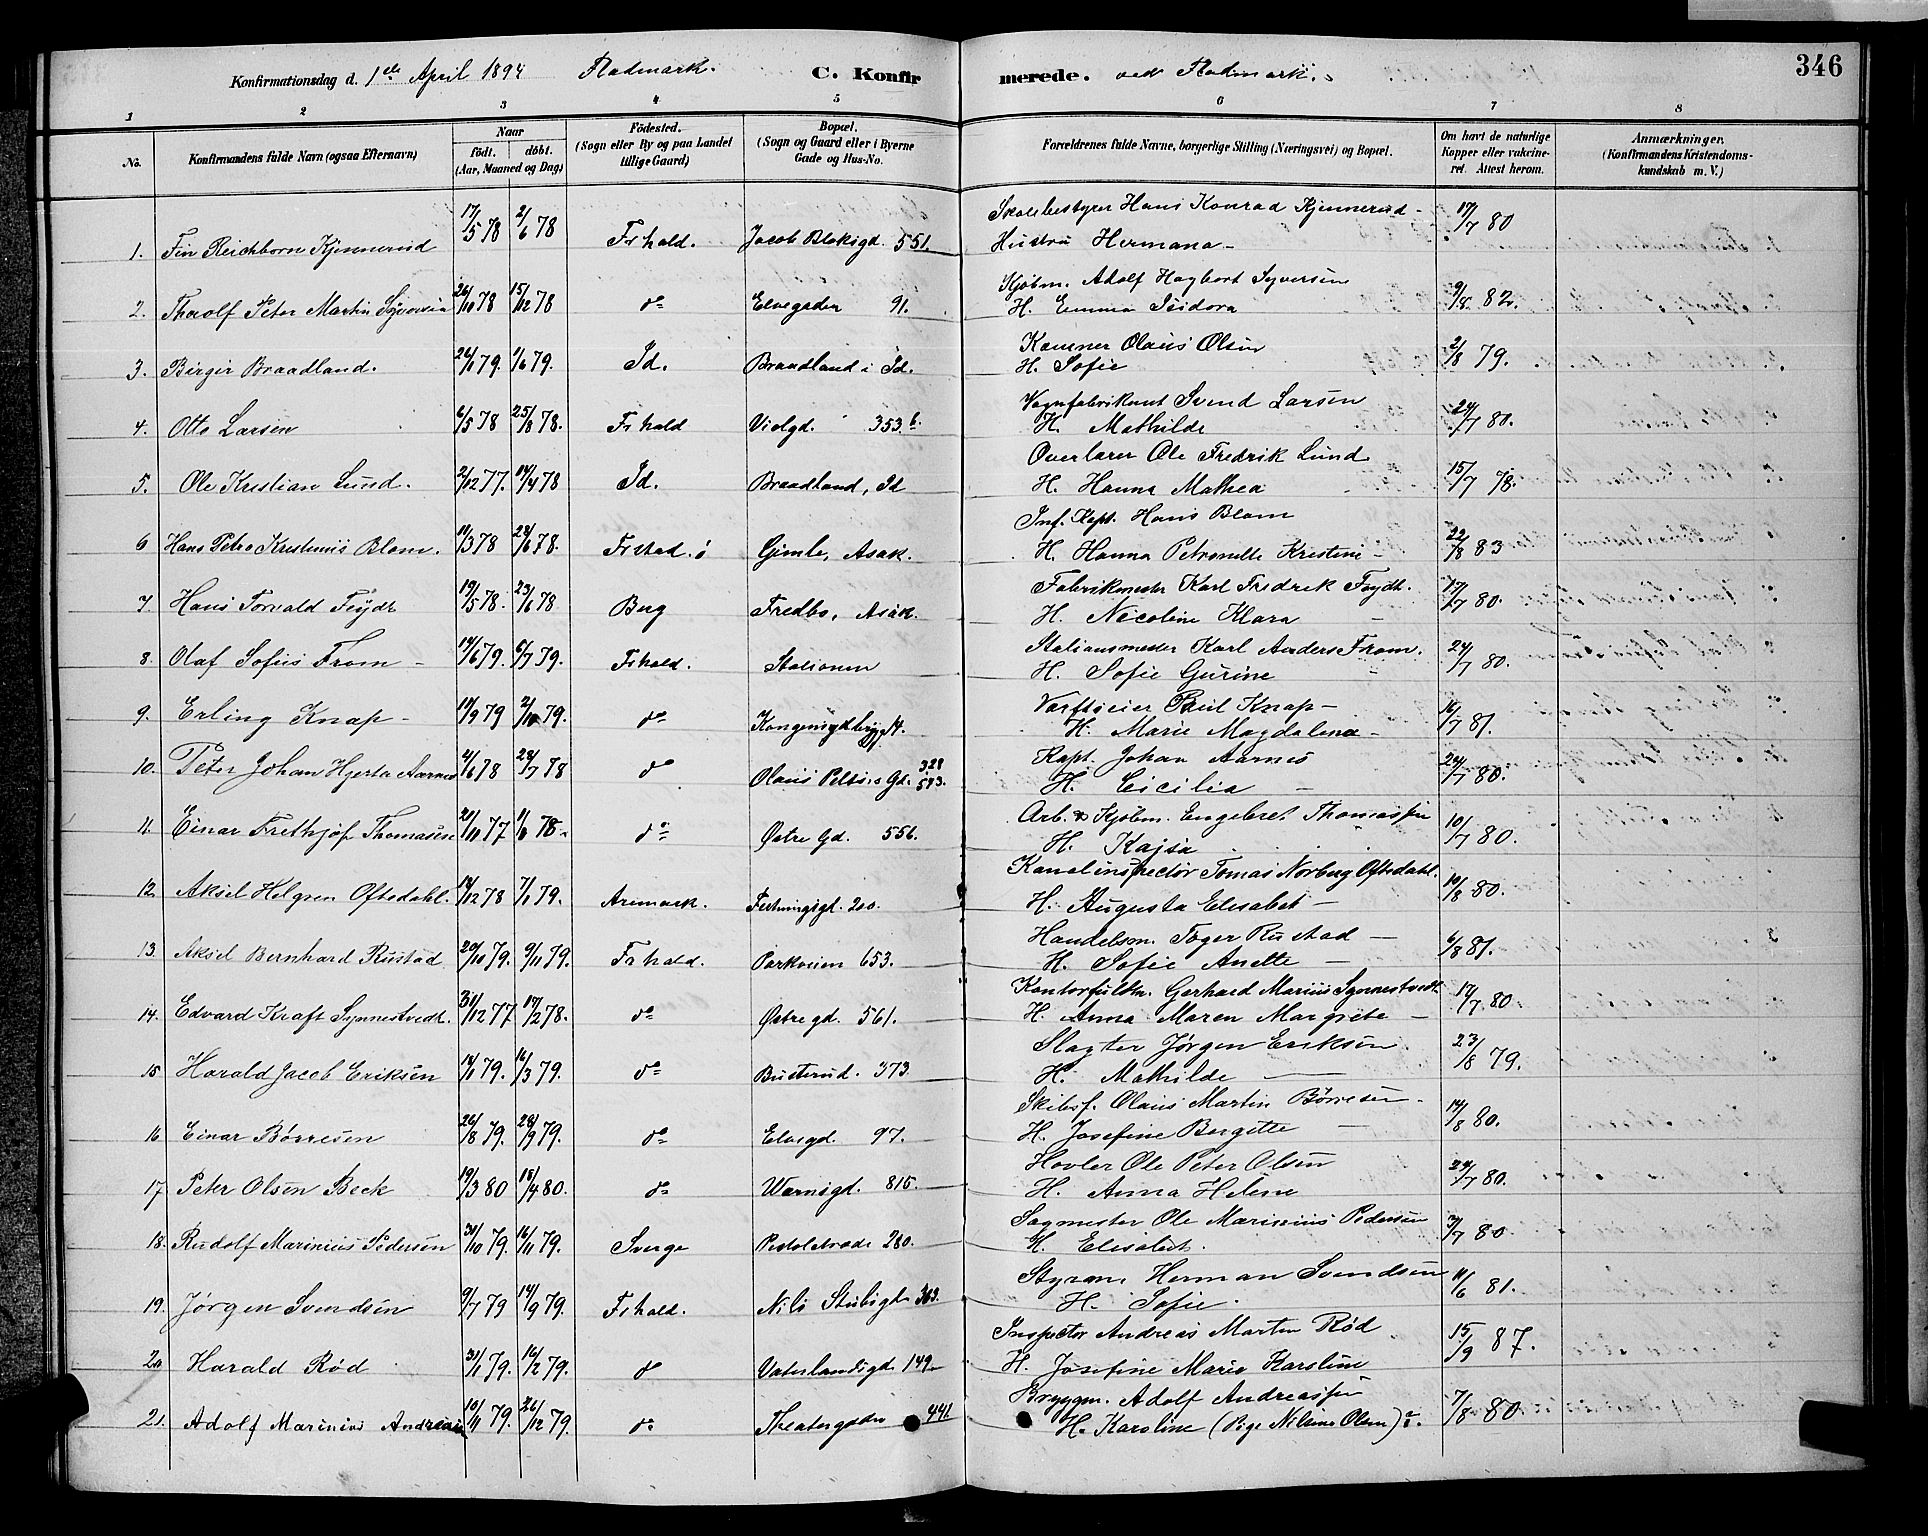 346
Konfirmationsdag d. 1ste April 1894 Fladmark. C. Konfirmerede. ved Fladmark.
1 2 3 4 5 6 7 8
No. Konfirmandens fulde Navn (ogsaa Efternavn) Naar födt. döbt. (Aar, Maaned og Dag) Födested. (Sogn eller By og paa Landet tillige Gaard) Bopæl. (Sogn og Gaard eller i Byerne Gade og Hus-No. Forældrenes fulde Navne, borgerlige Stilling (Næringsvei) og Bopæl. Om havt de naturlige Kopper eller vakcineret. Attest herom. Anmærkninger. (Konfirmandens Kristendomskundskab m. V.)
1. Fin Reichborn Kjennerud 17/5 78 2/6 78 Frhald. Jacob Bloksgd. 551. Skolebestyrer Hans Konrad Kjennerud - 17/7 80
Hustru Hermana -
2. Thoralf Peter Martin Syversen 26/10 78 15/12 78 do Elvegaden 91. Kjøbm. Adolf Hagbart Syversen 9/8 82.
H. Emma Isidora
3. Birger Braadland. 24/1 79. 1/6 79. Id. Braadland i Id. Kæmner Olaus Olsen 2/8 79.
H. Sofie
4. Otto Larsen 6/5 78 25/8 78. Frhald Violgd. 353.b. Vognfabrikant Svend Larsen 24/7 80.
H. Mathilde
5. Ole Kristian Lund. 2/12 77. 14/4 78 Id. Braadland, Id Overlærer Ole Fredrik Lund 15/7 78.
H. Hanna Mathea
6 Hans Petro Kristenius Blom. 11/3 78 24/6 78. Frstad. Gimle, Asak. Inf. Kapt. Hans Blom 22/8 83
H. Hanna Petronelle Kristine -
7. Hans Torvald Feydt 19/5 78. 23/6 78 Berg Fredbo, Asak. Fabrikmester Karl Fredrik Feydt. 17/7 80.
H. Nicoline Klara -
8. Olaf Sofus From - 14/6 79. 6/7 79. Frhald. Stationen Stationsmester Karl Anders From. 24/7 80.
H. Sofie Gurine
9. Erling Knap - 19/9 79 2/10 79. do Kongens Værftseier Paul Knap - 16/7 81.
H. Marie Magdalena -
10. Peter Johan Hjerta Aarnes 2/6 78 28/7 78 do Olaus Peltsens Gd. 328 573. Kapt. Johan Aarnes 24/7 80.
H. Cicilia -
11. Einar Frethjof Thomasen 21/11 77 78. do Østre Gd. 556. Arb. & Kjøbm. Engebret Thomassen 10/7 80.
H. Kajsa
12. Aksel Holgren Oftedahl. 14/12 78 7/1 79. Aremark. Festningsgt. 200. Kanalinspector Tomas Norberg Oftedahl. 10/8 80.
H. Augusta Elisabet -
13. Aksel Bernhard Rustad 20/10 79. 9/11 79. Frhald. Parkveien 653. Handelsm. Toger Rustad - 6/8 81.
H. Sofie Anette -
14. Edvard Kraft Synnestvedt. 31/12 77 17/2 78. do Østre gd. 561. Kontorfuldm. Gerhard Marius Synnestvedt 17/7 80.
H. Anna Maren Margrete -
15 Harald Jacob Eriksen 14/1 79. 16/3 79. do Busterud. 373. Slagter Jørgen Eriksen 23/8 79.
H. Mathilde -
16 Einar Børresen 26/8 79. 28/9 79. do Elvegd. 97. Skibsf. Olaus Martin Børresen - 14/8 80.
H. Josefine Bergitte -
17. Peter Olsen Beck 19/3 80 18/4 80. do Wærnsgd. 815. Høvler Ole Peter Olsen 24/7 80.
H. Anna Helene
18. Rudolf Marinius Pedersen 31/10 79. 16/11 79. Sverge Pistolstræde 280. Sagmester Ole Marinius Pedersen 3/7 80.
H. Elisabet.
19. Jørgen Svendsen 9/7 79 14/9 79. Frhald. Nils Stubsgt 363. Styrm. Herman Svendsen 11/6 81.
H. Sofie.
20 Harald Rød 31/1 79. 16/2 79. do Vaterlandsgd 149 Inspector Andreas Martin Rød 15/9 87.
H. Josefine Marie Karoline
21. Adolf Marinius Andreasen 10/11 79. 26/12 79. do Theatergaden 441 Bryggm. Adolf Andreassen 7/8 80.
H. Karoline (Pige Nilsine Olsen)